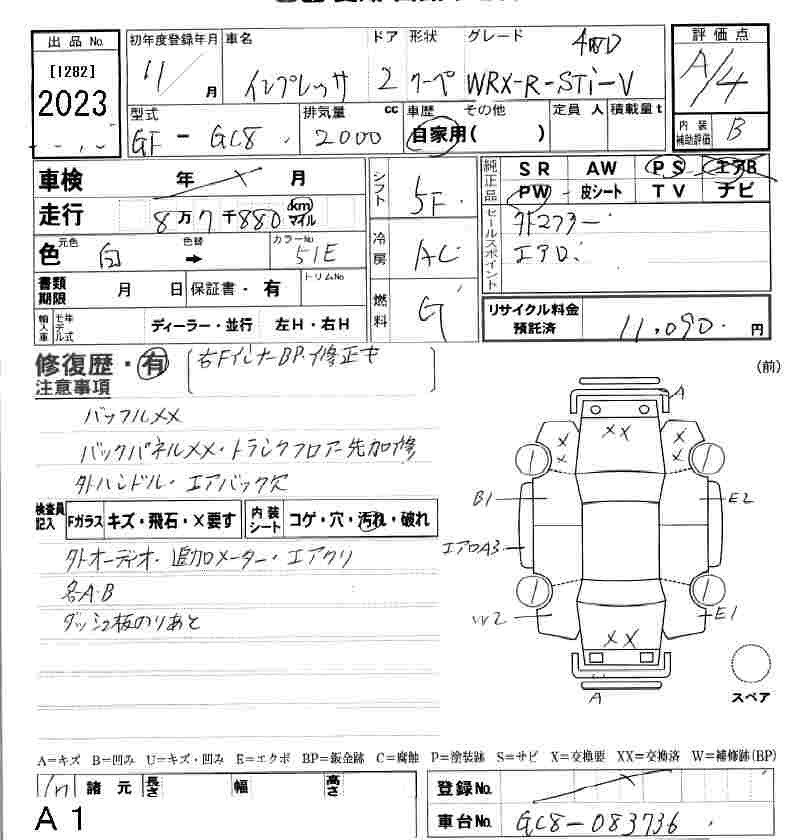 出品No.
[1282]
2023
初年度登録年月 車名 ドア 形状 グレード 4WD
11/ 月 インプレッサ 2 クーペ WRX-R-STi-V
型式 排気量 cc 車歴 その他 定員 人 積載量 t
GF-GC8 2000 自家用( )
評価点
A/4
内装補助評価 B
車検 年 月
走行 8万7千880 km マイル
色 元色 白 色替 → カラーNo 51E
書類期限 月 日 保証書・有 トリムNo
輸入車 モデル年式 ディーラー・並行 左H・右H
シフト 5F
冷房 AC
燃料 G
純正品 SR AW PS エアB
PW 皮シート TV ナビ
セールスポイント
外マフラー
エアロ
リサイクル料金預託済 11,090 円
修復歴・有 右FインナーBP・修正キ
注意事項
バッフルメメ
バックパネルメメ・トランクフロアー先加修
外ハンドル・エアバック欠
検査員記入 Fガラス キズ・飛石・X要す 内装シート コゲ・穴・汚れ・破れ
外オーディオ・追加メーター・エアクリ
各A・B
ダッシュ板のりあと
(前)
A
XX
X X
X X
B1 E2
エアロA3
W2 E1
XX
A
スペア
A=キズ B=凹み U=キズ・凹み E=エクボ BP=鈑金跡 C=腐蝕 P=塗装跡 S=サビ X=交換要 XX=交換済 W=補修跡(BP)
諸元 長さ 幅 高さ
登録No.
車台No. GC8-083736
A1